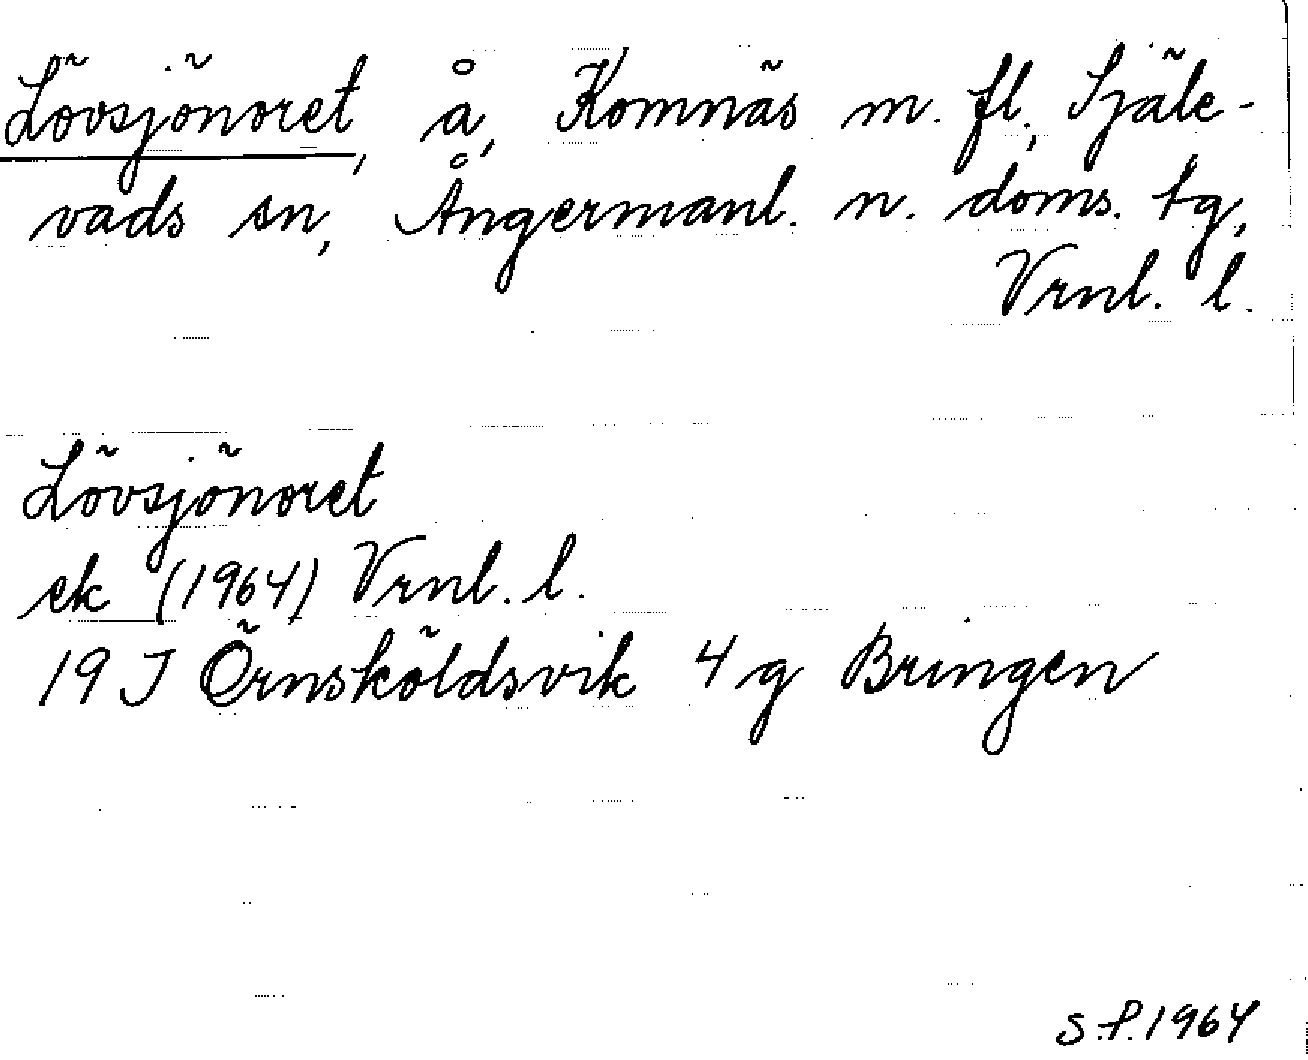 Lövsjönoret, å, Komnäs m. fl., Själe-
vads sn, Ångermanl. n. doms. tg,
Vrnl. l.
Lövsjönoret
ek (1964) Vrnl. l.
19 J Örnsköldsvik 4 g Bringen
S.P. 1964